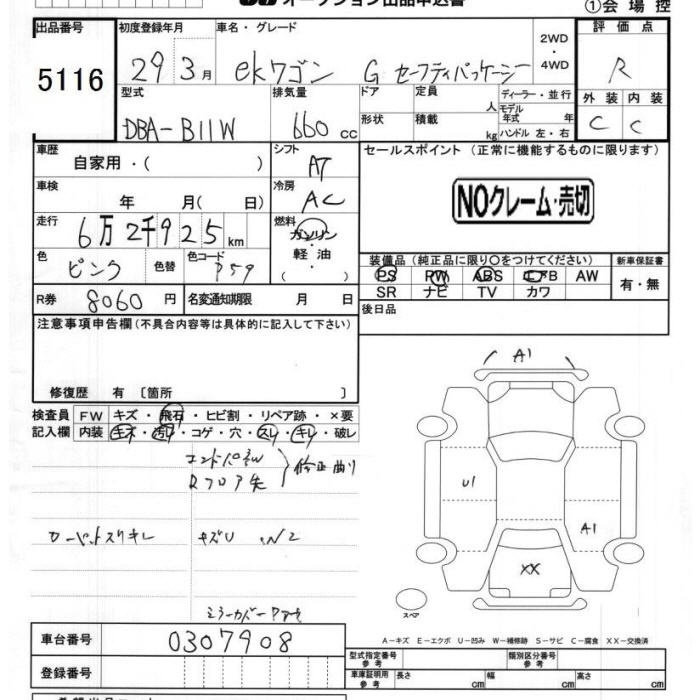 オークション出品申込書
①会場控
出品番号
5116
初度登録年月
29 3月
車名・グレード
ekワゴン G セーフティパッケージ
2WD
・
4WD
評価点
R
型式
DBA-B11W
排気量
660 cc
ドア
定員
人
ディーラー・並行
モデル
年式 年
形状
積載
kg
ハンドル 左・右
外装 内装
C C
車歴
自家用・( )
シフト
AT
セールスポイント (正常に機能するものに限ります)
NOクレーム・売切
車検
年 月( 日)
冷房
AC
走行
6万2千925km
燃料
ガソリン
・
軽油
( )
色
ピンク
色替
色コード
P59
装備品(純正品に限り○をつけてください)
新車保証書
PS PW ABS エアB AW
SR ナビ TV カワ
有・無
R券 8060円
名変通知期限 月 日
後日品
注意事項申告欄(不具合内容等は具体的に記入して下さい)
修復歴 有〔箇所 〕
検査員
記入欄
FW キズ・飛石・ヒビ割・リペア跡・×要
内装 キズ・汚れ・コゲ・穴・スレ・キレ・破レ
エンドパネル
RフロアA先
修正曲り
キズU
A1
U1
A1
XX
スペア
A-キズ E-エクボ U-凹み W-補修跡 S-サビ C-腐食 XX-交換済
車台番号
0307908
登録番号
型式指定番号
参考
類別区分番号
参考
車庫証明用
参考
長さ cm
幅 cm
高さ cm